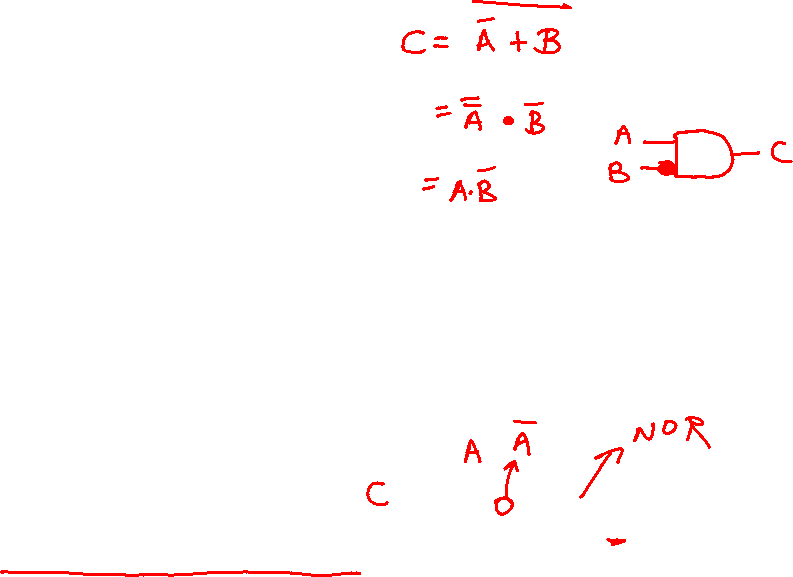 C = \overline{\overline{A} + B}
= \overline{\overline{A}} • \overline{B}
A
C
B
= A · \overline{B}
A \overline{A} NOR
C